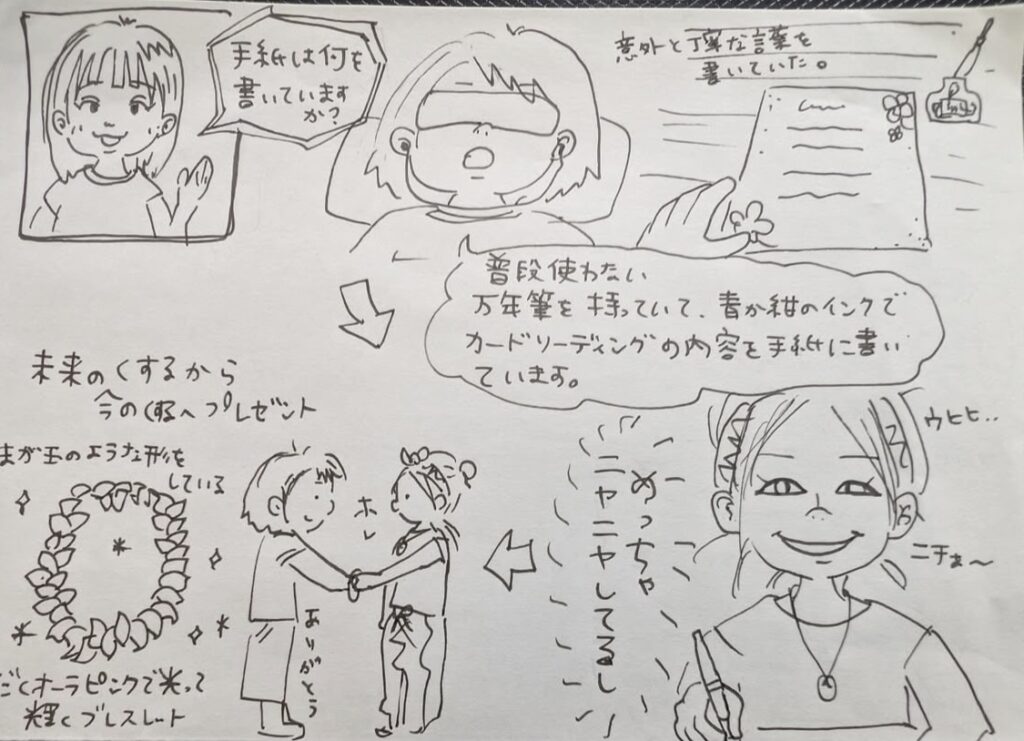 手紙は何を
書いています
か?
意外と丁寧な言葉を
書いていた。
普段使わない
万年筆を持っていて、青か紺のインクで
カードリーディングの内容を手紙に書い
ています。
ウヒヒ..
ニチぁ〜
めっちゃ
ニヤニヤしてるし
ホレ
ありがとう
未来のくするから
今のくするへプレゼント
まが玉のような形を
している
だくオーラピンクで光って
輝くブレスレット